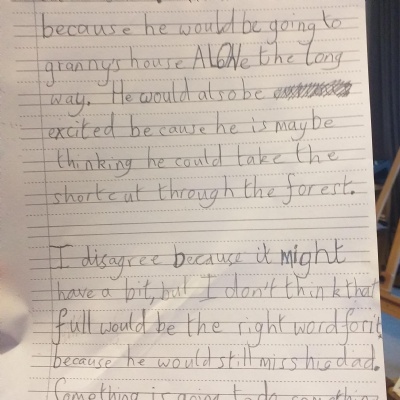 because he would be going to
granny's house ALONe the long
way. He would also be
excited because he is maybe
thinking he could take the
shortcut through the forest.
I disagree because it might
have a bit, but I don't think that
full would be the right word for it
because he would still miss his dad.
Something is going to do something